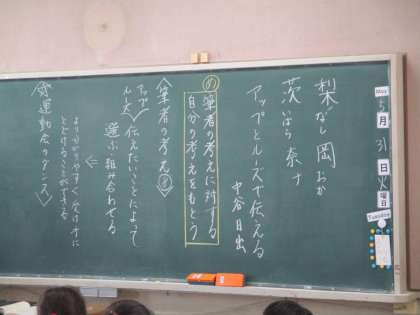 May
5
月
31
日
火
曜
Tuesday
梨なし 岡おか
茨いばら 奈ナ
アップとルーズで伝える
中谷日出
め
筆者の考えに対する
自分の考えをもとう
筆者の考え
アップ
ルーズ
伝えたいことによって
選ぶ 組み合わせる
より分かりやすく受け手に
とどけることができる
運動会のダンス